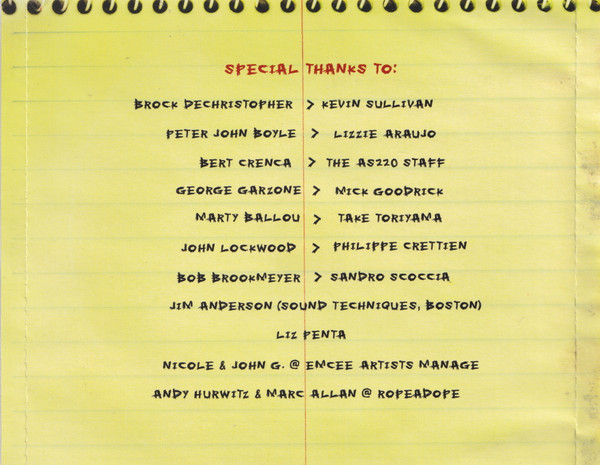 SPECIAL THANKS TO:
BROCK DECHRISTOPHER > KEVIN SULLIVAN
PETER JOHN BOYLE > LIZZIE ARAUJO
BERT CRENCA > THE AS220 STAFF
GEORGE GARZONE > MICK GOODRICK
MARTY BALLOU > TAKE TORIYAMA
JOHN LOCKWOOD > PHILIPPE CRETTIEN
BOB BROOKMEYER > SANDRO SCOCCIA
JIM ANDERSON (SOUND TECHNIQUES, BOSTON)
LIZ PENTA
NICOLE & JOHN G. @ EMCEE ARTISTS MANAGE
ANDY HURWITZ & MARC ALLAN @ ROPEADOPE